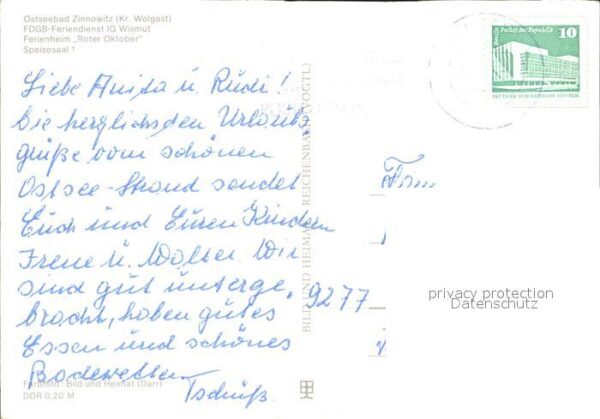 Ostseebad Zinnowitz (Kr. Wolgast)
FDGB-Feriendienst IG Wismut
Ferienheim „Roter Oktober"
Speisesaal 1
Liebe Anita u. Rudi!
Die herzlichsden Urlaubs
grüße vom schönen
Ostsee-Strand sendet
Euch und Euren Kindern
Irene u. Walter. Wir
sind gut unterge,
bracht, haben gutes
Essen und schönes
Badewetter.
Tschüß.
Farbfoto: Bild und Heimat (Darr)
DDR 0,20 M
BILD UND HEIMAT REICHENBACH (VOGTL)
Berlin Palast der Republik
10
DEUTSCHE DEMOKRATISCHE REPUBLIK
9277
privacy protection
Datenschutz